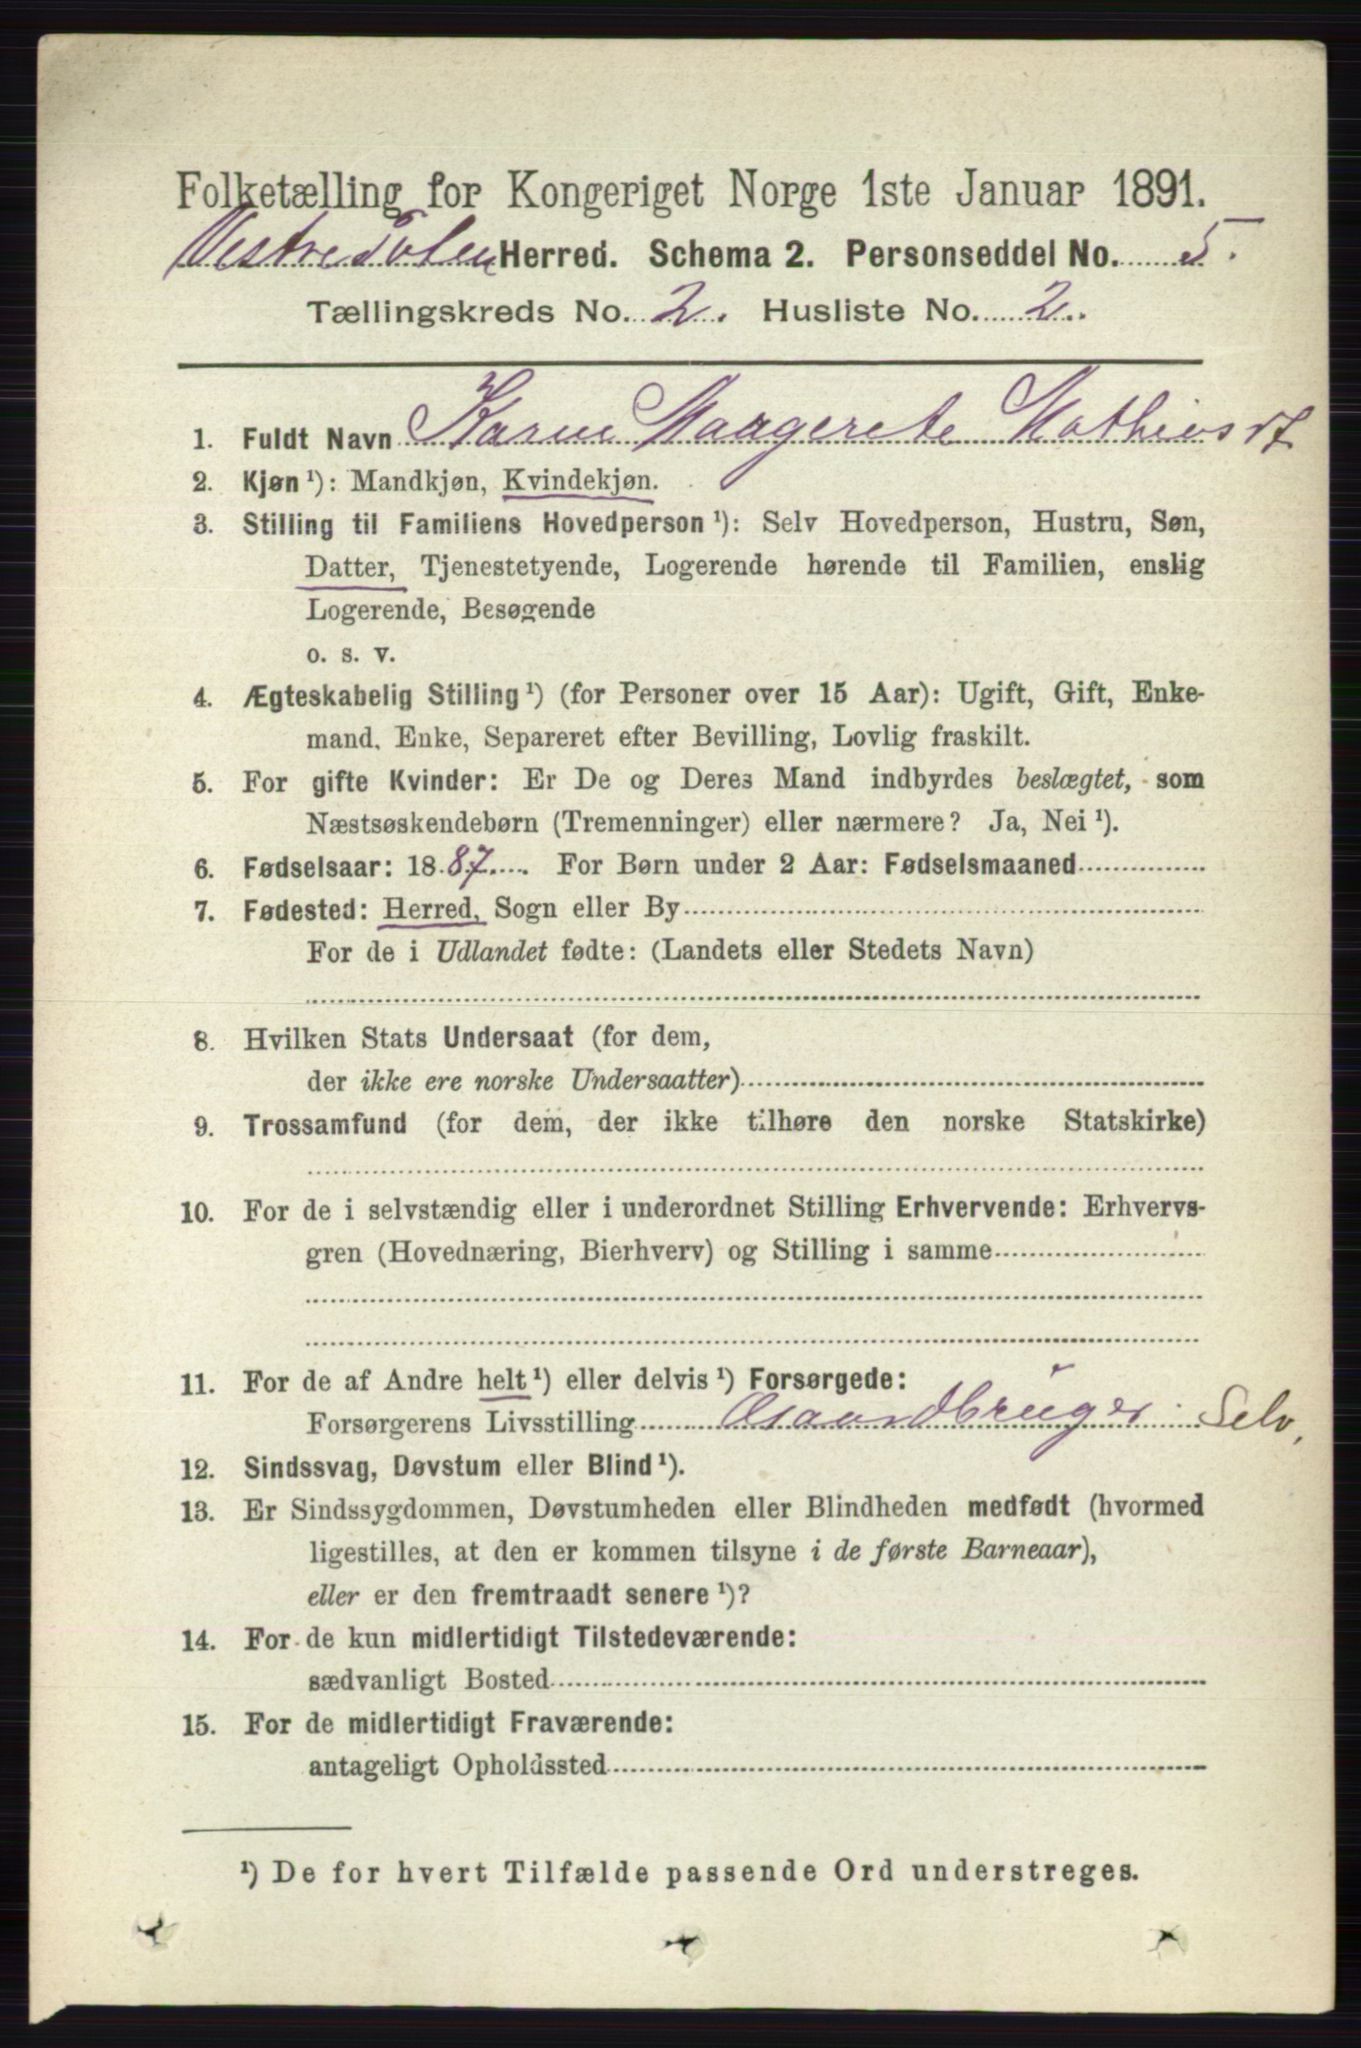 Folketælling for Kongeriget Norge 1ste Januar 1891.
Vestre Tolen Herred. Schema 2. Personseddel No. 5.
Tællingskreds No. 2. Husliste No. 2.
1. Fuldt Navn Karen Maagerete Mathiusdt
2. Kjøn ¹): Mandkjøn, Kvindekjøn.
3. Stilling til Familiens Hovedperson ¹): Selv Hovedperson, Hustru, Søn,
Datter, Tjenestetyende, Logerende hørende til Familien, enslig
Logerende, Besøgende
o. s. v.
4. Ægteskabelig Stilling ¹) (for Personer over 15 Aar): Ugift, Gift, Enke-
mand, Enke, Separeret efter Bevilling, Lovlig fraskilt.
5. For gifte Kvinder: Er De og Deres Mand indbyrdes beslægtet, som
Næstsøskendebørn (Tremenninger) eller nærmere? Ja, Nei ¹).
6. Fødselsaar: 1887. For Børn under 2 Aar: Fødselsmaaned
7. Fødested: Herred, Sogn eller By
For de i Udlandet fødte: (Landets eller Stedets Navn)
8. Hvilken Stats Undersaat (for dem,
der ikke ere norske Undersaatter)
9. Trossamfund (for dem, der ikke tilhøre den norske Statskirke)
10. For de i selvstændig eller i underordnet Stilling Erhvervende: Erhvervs-
gren (Hovednæring, Bierhverv) og Stilling i samme
11. For de af Andre helt ¹) eller delvis ¹) Forsørgede:
Forsørgerens Livsstilling Gaardbrüger Selv,
12. Sindssvag, Døvstum eller Blind ¹).
13. Er Sindssygdommen, Døvstumheden eller Blindheden medfødt (hvormed
ligestilles, at den er kommen tilsyne i de første Barneaar),
eller er den fremtraadt senere ¹)?
14. For de kun midlertidigt Tilstedeværende:
sædvanligt Bosted
15. For de midlertidigt Fraværende:
antageligt Opholdssted
¹) De for hvert Tilfælde passende Ord understreges.